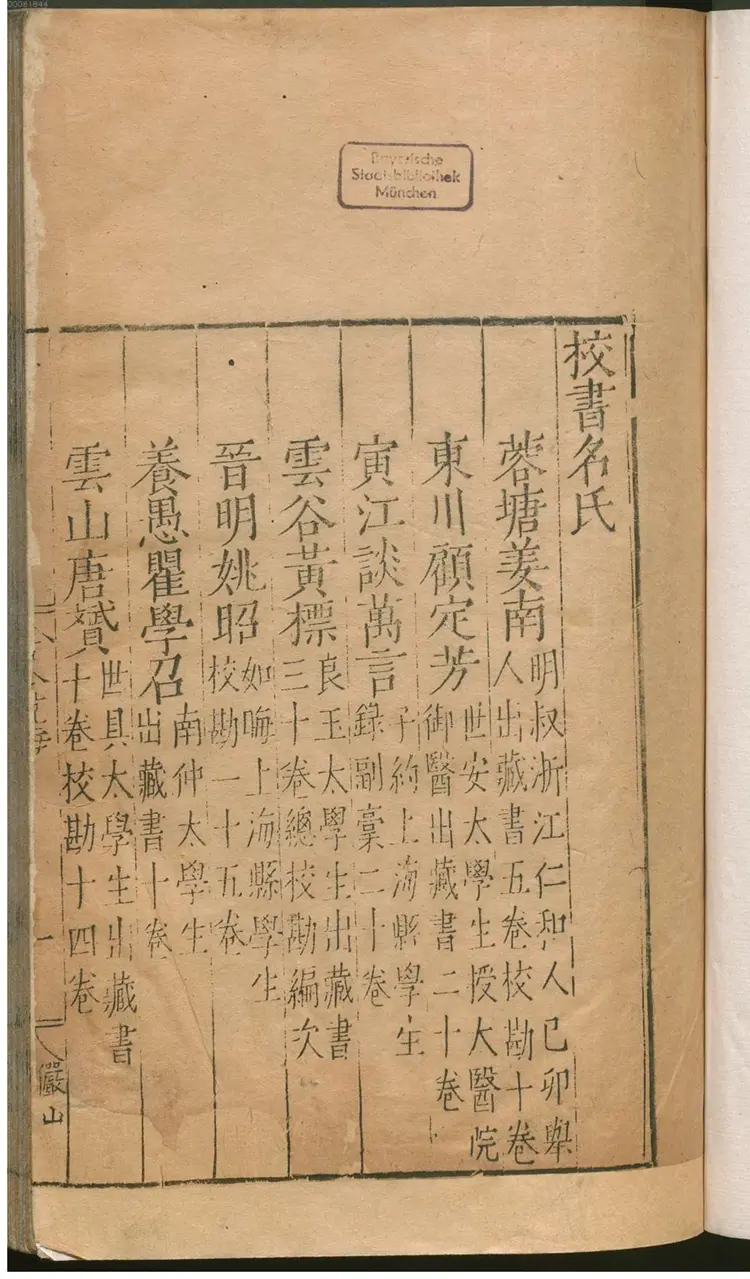 00081844
Bayerische
Staatsbibliothek
München
校書名氏
蓉塘姜南明叔浙江仁和人己卯舉
人出藏書五卷校勘十卷
東川顧定芳世安太學生授太醫院
御醫出藏書二十卷
寅江談萬言子約上海縣學生
錄副藁二十卷
雲谷黃標良玉太學生出藏書
三十卷總校勘編次
晉明姚昭如晦上海縣學生
校勘一十五卷
養愚瞿學召南仲太學生
出藏書十卷
雲山唐贇世具太學生出藏書
十卷校勘十四卷
一
嚴山